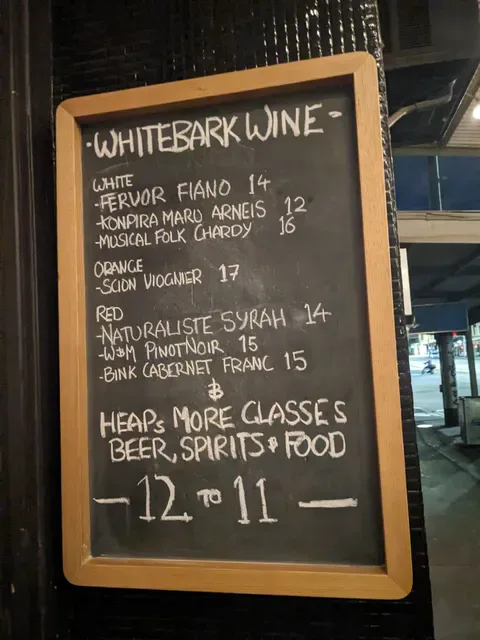 ·WHITEBARK WINE-
WHITE
-FERVOR FIANO 14
-KONPIRA MARU ARNEIS 12
-MUSICAL FOLK CHARDY 16
ORANGE
-SCION VIOGNIER 17
RED
-NATURALISTE SYRAH 14
-W&M PINOT NOIR 15
-BINK CABERNET FRANC 15
&
HEAPS MORE GLASSES
BEER, SPIRITS & FOOD
- 12 TO 11 -